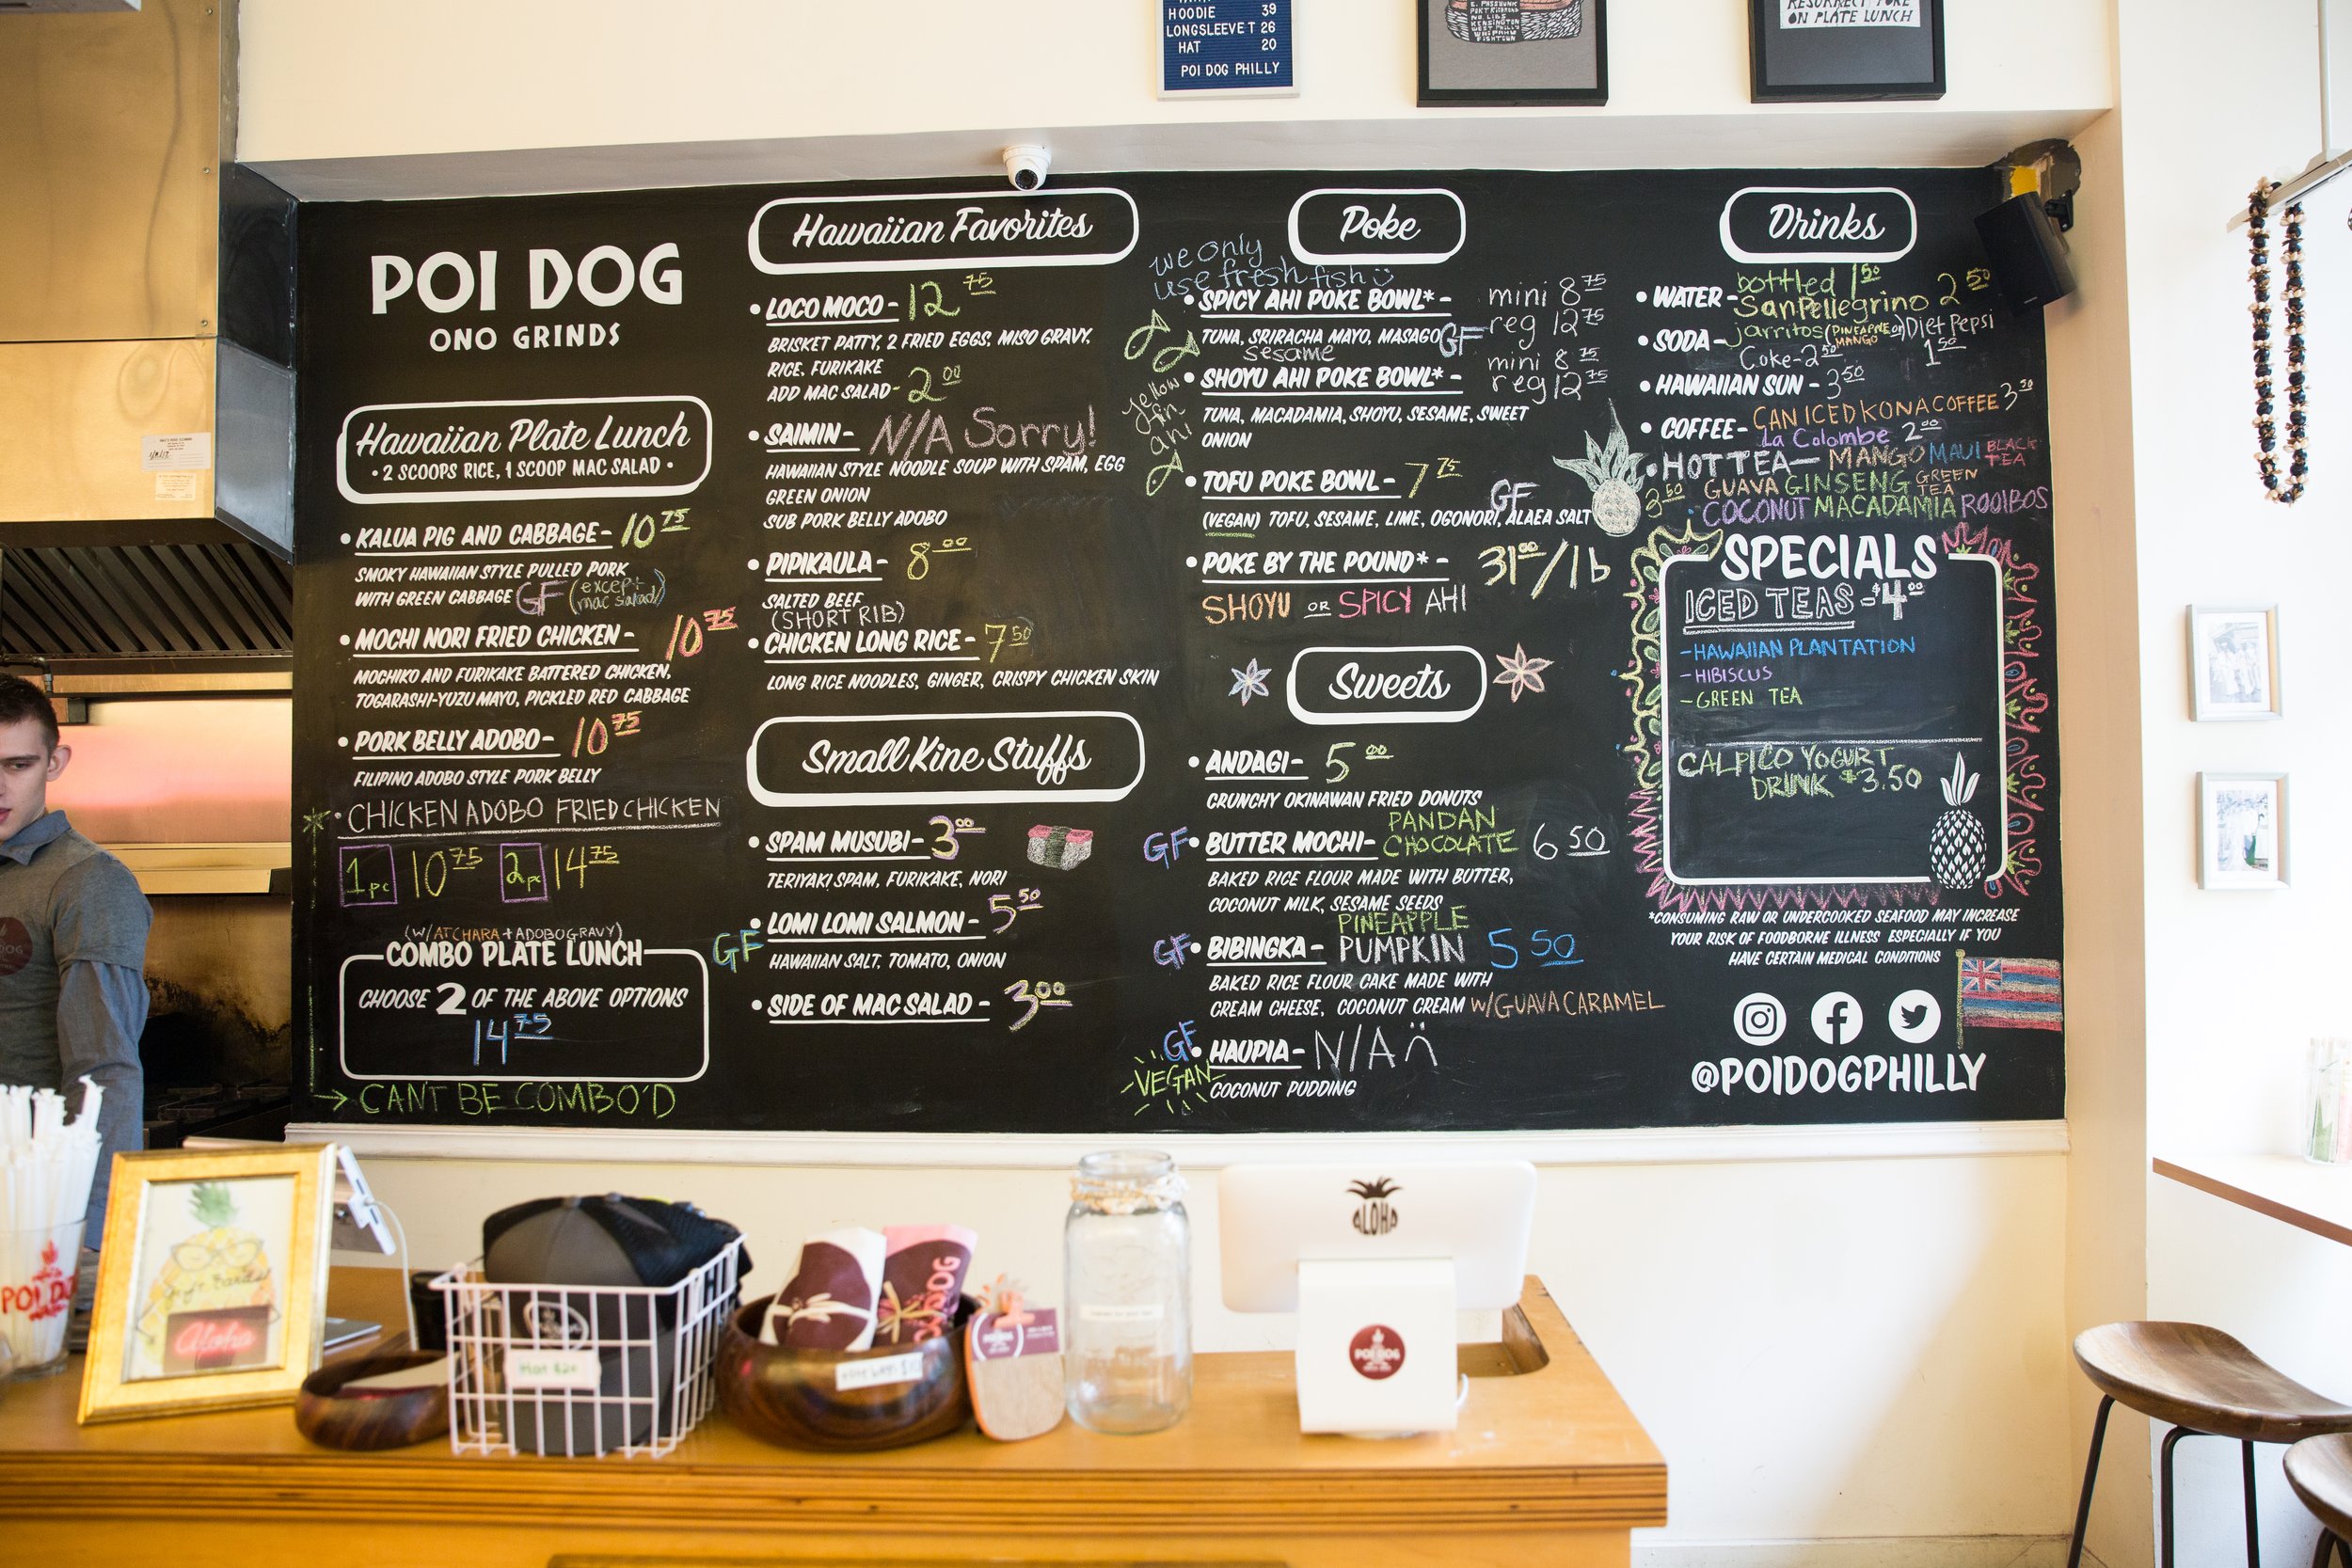 HOODIE 39
LONGSLEEVE T 26
HAT 20
POI DOG PHILLY
ON PLATE LUNCH
POI DOG
ONO GRINDS
Hawaiian Plate Lunch
• 2 SCOOPS RICE, 1 SCOOP MAC SALAD •
• KALUA PIG AND CABBAGE - 10 75
SMOKY HAWAIIAN STYLE PULLED PORK
WITH GREEN CABBAGE GF (except mac salad)
• MOCHI NORI FRIED CHICKEN - 10 75
MOCHIKO AND FURIKAKE BATTERED CHICKEN,
TOGARASHI-YUZU MAYO, PICKLED RED CABBAGE
• PORK BELLY ADOBO - 10 75
FILIPINO ADOBO STYLE PORK BELLY
• CHICKEN ADOBO FRIED CHICKEN
1pc 10 75 2pc 14 75
(W/ ATCHARA + ADOBO GRAVY)
COMBO PLATE LUNCH
CHOOSE 2 OF THE ABOVE OPTIONS
14 75
→ CAN'T BE COMBO'D
Hawaiian Favorites
• LOCO MOCO - 12 75
BRISKET PATTY, 2 FRIED EGGS, MISO GRAVY,
RICE, FURIKAKE
ADD MAC SALAD - 2 00
• SAIMIN - N/A Sorry!
HAWAIIAN STYLE NOODLE SOUP WITH SPAM, EGG
GREEN ONION
SUB PORK BELLY ADOBO
• PIPIKAULA - 8 00
SALTED BEEF
(SHORT RIB)
• CHICKEN LONG RICE - 7 50
LONG RICE NOODLES, GINGER, CRISPY CHICKEN SKIN
Small Kine Stuffs
• SPAM MUSUBI - 3 00
TERIYAKI SPAM, FURIKAKE, NORI
GF • LOMI LOMI SALMON - 5 50
HAWAIIAN SALT, TOMATO, ONION
• SIDE OF MAC SALAD - 3 00
Poke
we only
use fresh fish
• SPICY AHI POKE BOWL* - mini 8 75
reg 12 75
TUNA, SRIRACHA MAYO, MASAGO GF
sesame
• SHOYU AHI POKE BOWL* - mini 8 75
reg 12 75
yellow
fin
ahi
TUNA, MACADAMIA, SHOYU, SESAME, SWEET
ONION
• TOFU POKE BOWL - 7 75
GF
(VEGAN) TOFU, SESAME, LIME, OGONORI, ALAEA SALT
• POKE BY THE POUND* - 31 00/lb
SHOYU OR SPICY AHI
Sweets
• ANDAGI - 5 00
CRUNCHY OKINAWAN FRIED DONUTS
PANDAN
GF • BUTTER MOCHI - CHOCOLATE 6 50
BAKED RICE FLOUR MADE WITH BUTTER,
COCONUT MILK, SESAME SEEDS
PINEAPPLE
GF • BIBINGKA - PUMPKIN 5 50
BAKED RICE FLOUR CAKE MADE WITH
CREAM CHEESE, COCONUT CREAM W/GUAVA CARAMEL
GF • HAUPIA - N/A
VEGAN
COCONUT PUDDING
Drinks
• WATER - bottled 1 50
SanPellegrino 2 50
• SODA - jarritos (PINEAPPLE or MANGO) Diet Pepsi
Coke - 2 50 1 50
• HAWAIIAN SUN - 3 50
• COFFEE - CAN ICED KONA COFFEE 3 50
La Colombe 2 00
• HOT TEA — MANGO MAUI BLACK TEA
3 50 GUAVA GINSENG GREEN TEA
COCONUT MACADAMIA ROOIBOS
SPECIALS
ICED TEAS - $4 00
- HAWAIIAN PLANTATION
- HIBISCUS
- GREEN TEA
CALPICO YOGURT
DRINK $3.50
*CONSUMING RAW OR UNDERCOOKED SEAFOOD MAY INCREASE
YOUR RISK OF FOODBORNE ILLNESS ESPECIALLY IF YOU
HAVE CERTAIN MEDICAL CONDITIONS
@POIDOGPHILLY
ALOHA
POI DOG
Aloha